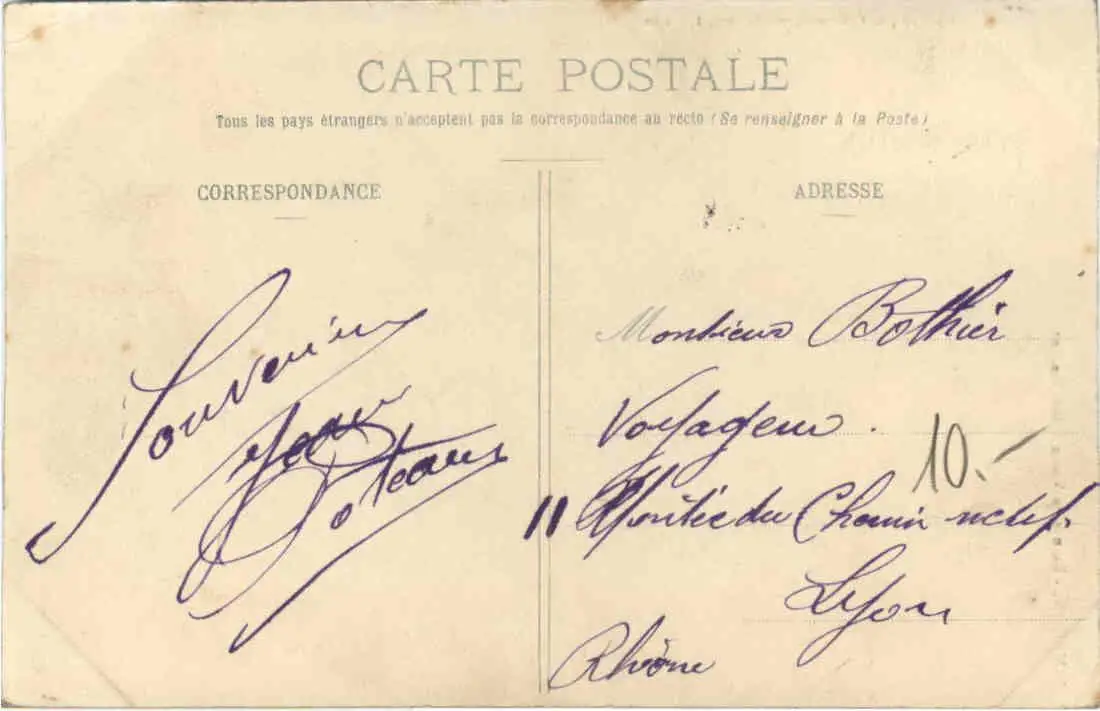 CARTE POSTALE
Tous les pays étrangers n'acceptent pas la correspondance au recto (Se renseigner à la Poste)
CORRESPONDANCE
ADRESSE
Souvenir
Jean
Monsieur Bothier
Voyageur.
10.-
11 Montée du Chemin neuf.
Lyon
Rhône